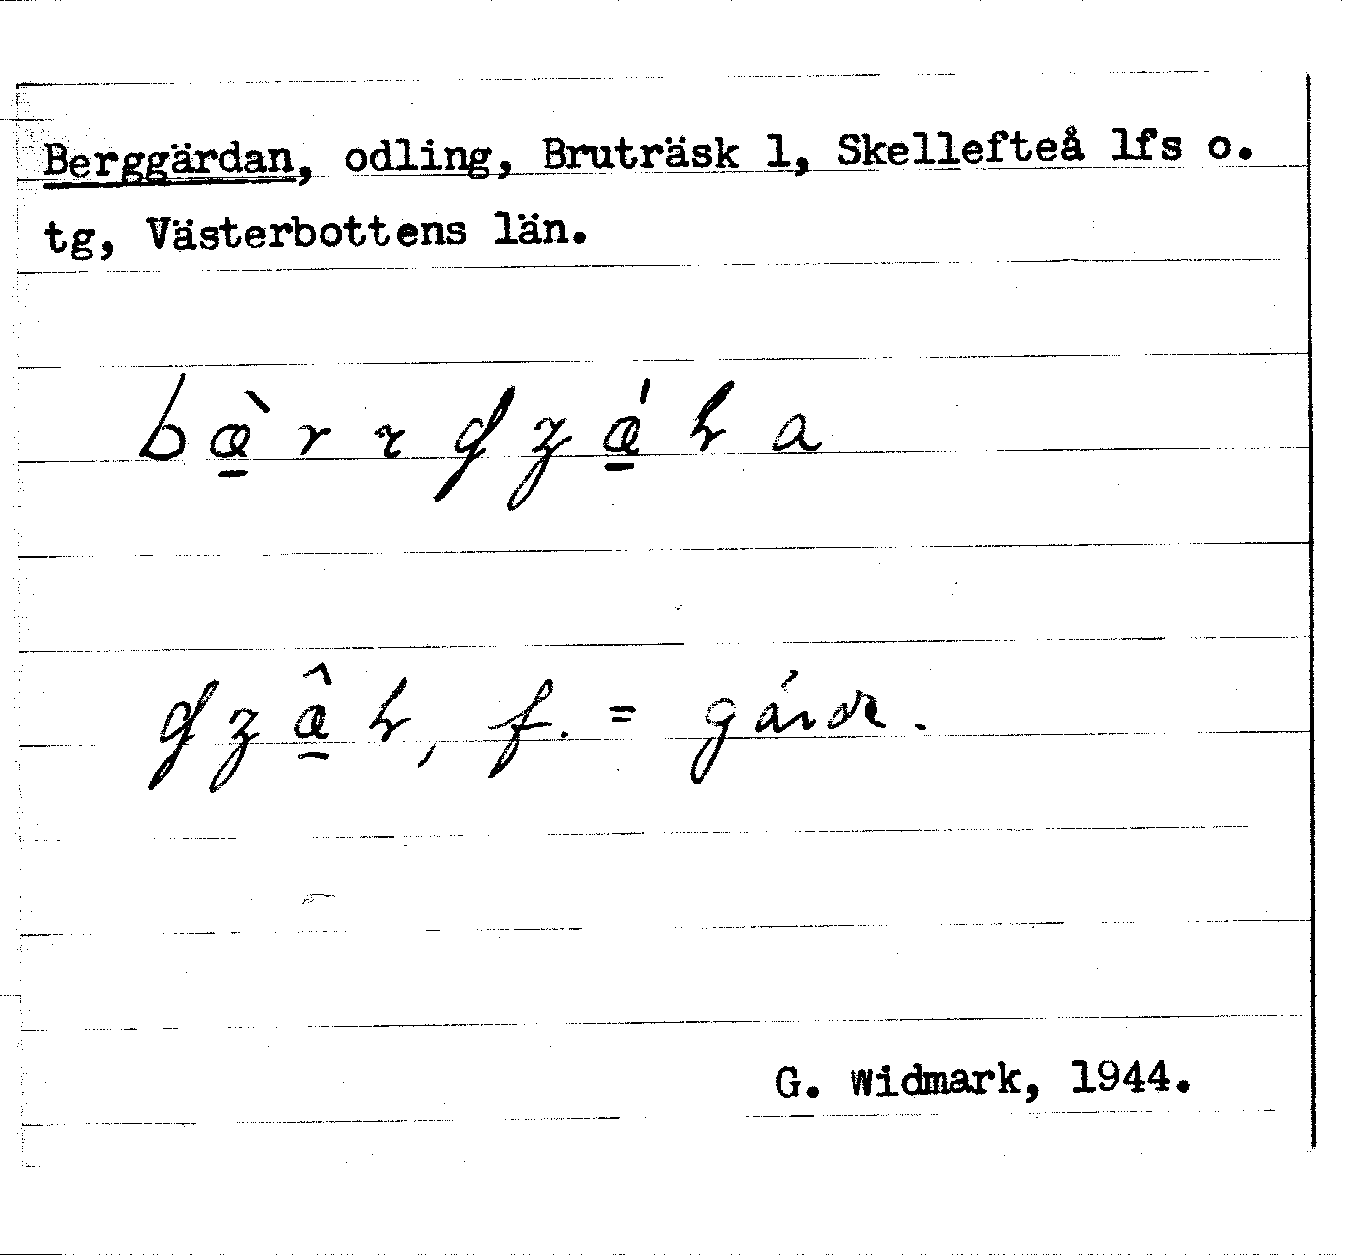 Berggärdan, odling, Bruträsk 1, Skellefteå lfs o.
tg, Västerbottens län.
f. = gärde.
G. Widmark, 1944.